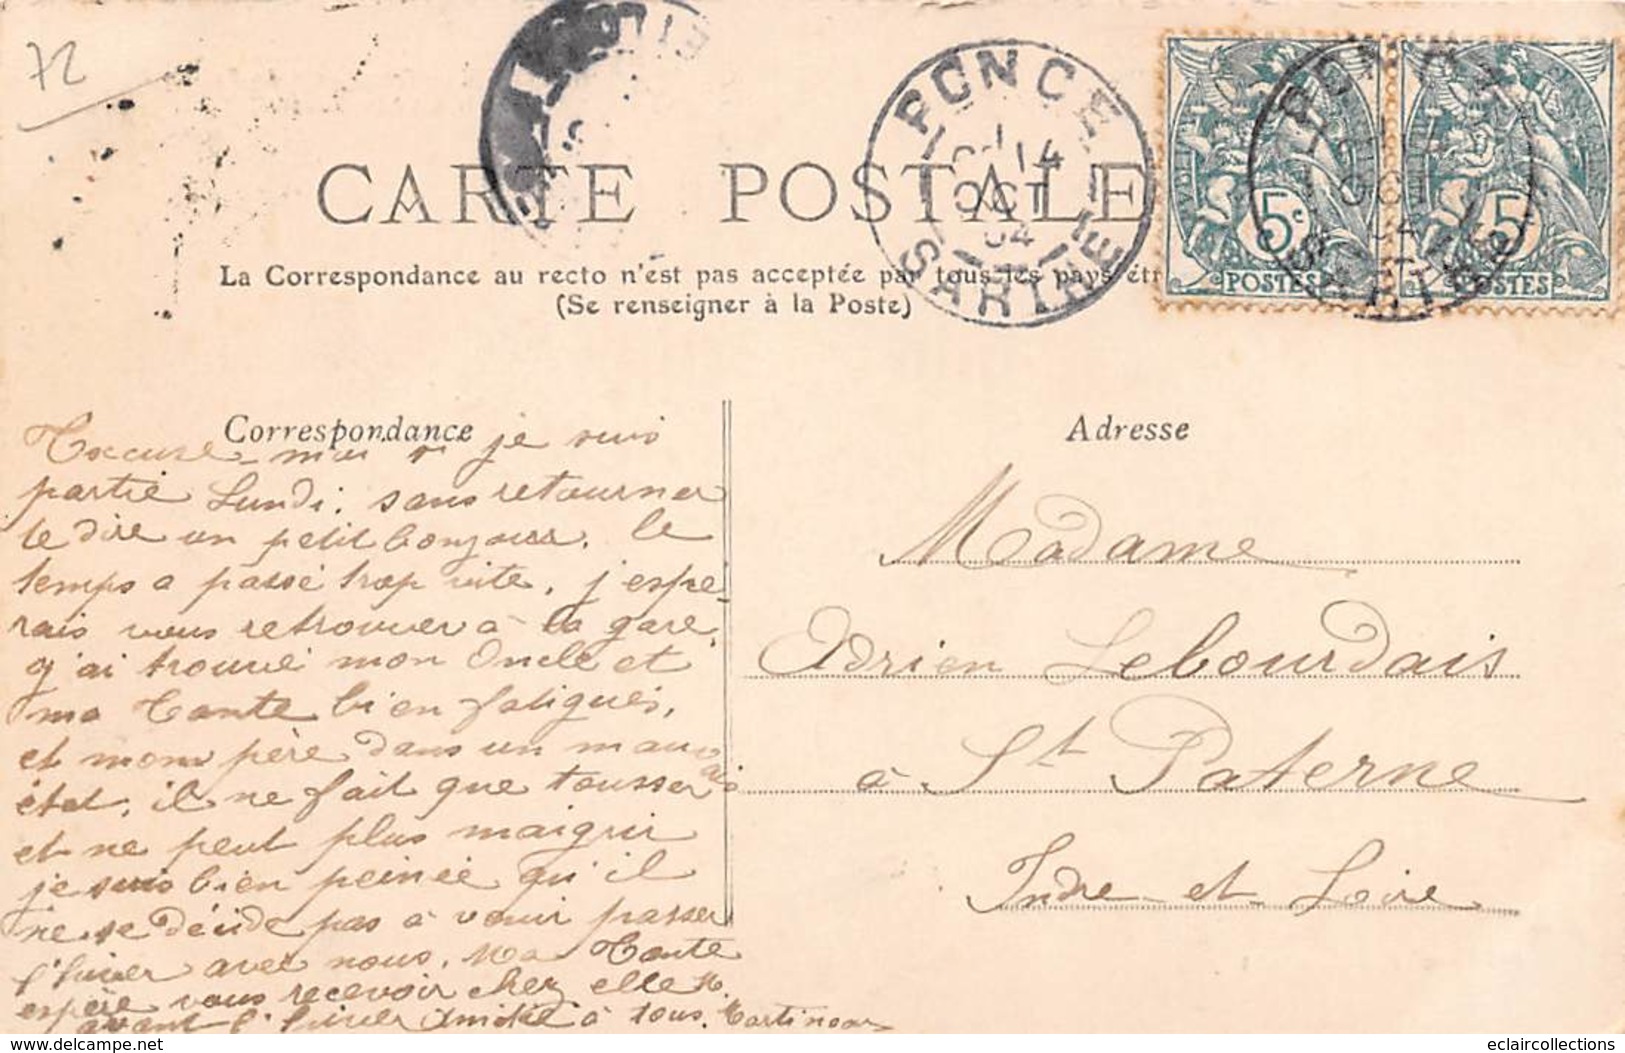 72
PONCÉ
14
OCT
04
SARTHE
CARTE POSTALE
5c
POSTES
5
POSTES
La Correspondance au recto n'est pas acceptée par tous les pays étr
(Se renseigner à la Poste)
Correspondance
Excuse-moi si je suis
partie Lundi. sans retourner
te dire un petit bonjour. le
temps a passé trop vite. j'espé-
rais vous retrouver à la gare,
j'ai trouvé mon Oncle et
ma Tante bien fatigués,
et mon père dans un mauvais
état, il ne fait que tousser
et ne peut plus maigrir
je suis bien peinée qu'il
ne se décide pas à venir passer
l'hiver avec nous. Ma Tante
espère vous recevoir chez elle
avant l'hiver Amitié à tous.
Adresse
Madame
Adrien Lebourdais
à St Paterne
Indre-et-Loire
eclaircollections
www.delcampe.net